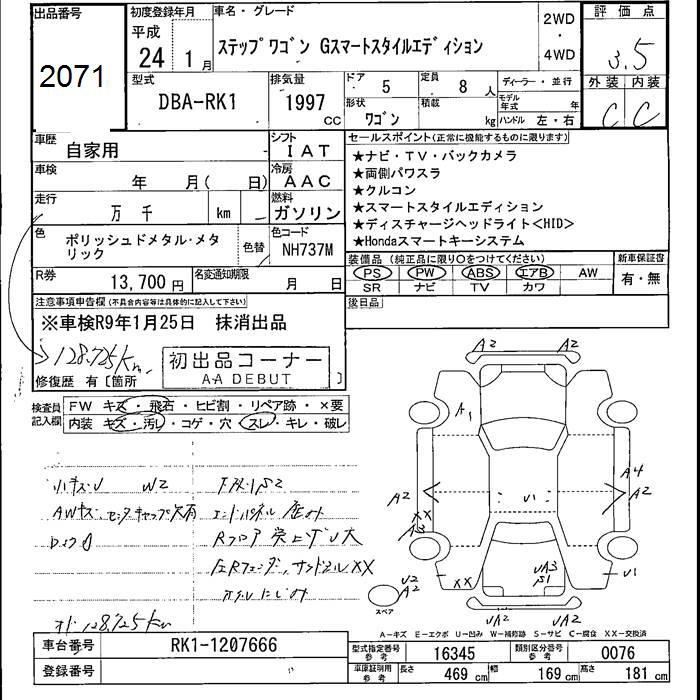 出品番号
2071
初度登録年月
平成
24年 1月
車名・グレード
ステップワゴン Gスマートスタイルエディション
2WD
・
4WD
評価点
3.5
外装 内装
C C
型式
DBA-RK1
排気量
1997 cc
ドア 5
定員 8人
形状 ワゴン
積載 kg
ディーラー・並行
モデル年式 年
ハンドル 左・右
車歴 自家用
シフト IAT
車検 年 月( 日)
冷房 AAC
走行 万 千 km
燃料 ガソリン
色 ポリッシュドメタル・メタリック
色替
色コード NH737M
R券 13,700円
名変通知期限 月 日
セールスポイント(正常に機能するものに限ります)
★ナビ・TV・バックカメラ
★両側パワスラ
★クルコン
★スマートスタイルエディション
★ディスチャージヘッドライト<HID>
★Hondaスマートキーシステム
装備品 (純正品に限り○をつけてください)
新車保証書
PS PW ABS エアB AW
SR ナビ TV カワ
有・無
後日品
注意事項申告欄(不具合内容等は具体的に記入して下さい)
※車検R9年1月25日 抹消出品
128,725Km
初出品コーナー
AA DEBUT
修復歴 有〔箇所 〕
検査員記入欄
FW キズ・飛石・ヒビ割・リペア跡・×要
内装 キズ・汚れ・コゲ・穴・スレ・キレ・破レ
小キズU W2
AWキズ センターキャップ欠有
エンドパネル
Rフロア 突上ゲU大
左Rフェンダー、サイドシルXX
オド 128,725Km
A2
A2
A1
A2
XX
A3
A4
A2
U1
UA3
S1
U2
A2
XX
U1
UA2
UA2
スペア
A-キズ E-エクボ U-凹み W-補修跡 S-サビ C-腐食 XX-交換済
車台番号 RK1-1207666
登録番号
型式指定番号 参考 16345
類別区分番号 参考 0076
車庫証明用 参考
長さ 469cm 幅 169cm 高さ 181cm